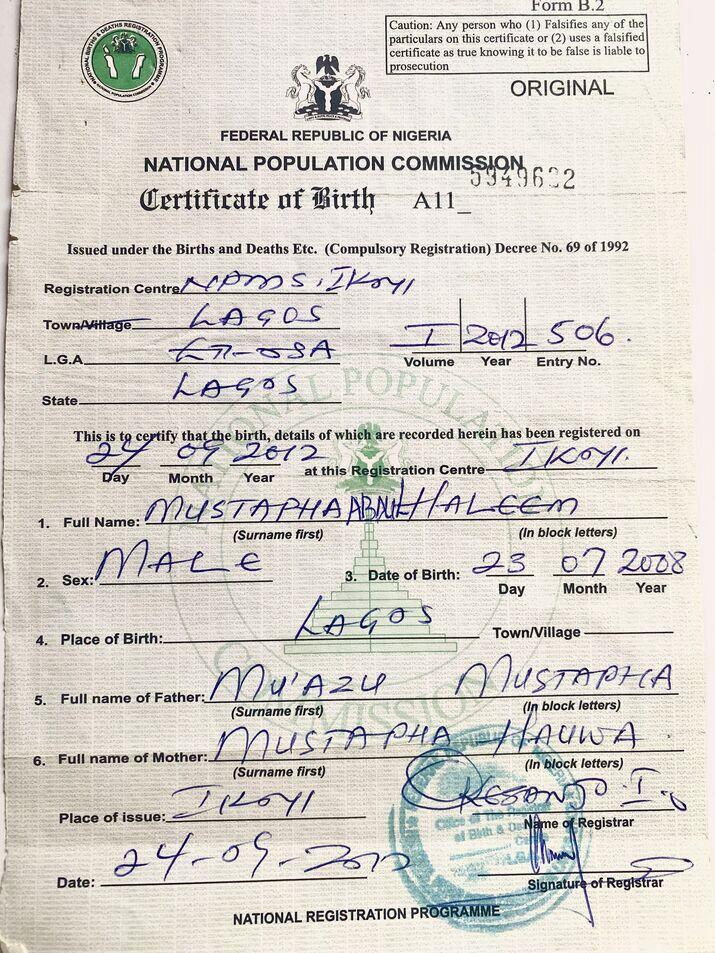 Form B.2
Caution: Any person who (1) Falsifies any of the
particulars on this certificate or (2) uses a falsified
certificate as true knowing it to be false is liable to
prosecution
ORIGINAL
FEDERAL REPUBLIC OF NIGERIA
NATIONAL POPULATION COMMISSION
Certificate of Birth A11_ 5949632
Issued under the Births and Deaths Etc. (Compulsory Registration) Decree No. 69 of 1992
Registration Centre IKOYI
Town/Village LAGOS
I 2012 506.
L.G.A. ETI-OSA
Volume Year Entry No.
State LAGOS
NATIONAL POPULATION COMMISSION
This is to certify that the birth, details of which are recorded herein has been registered on
24 09 2012 at this Registration Centre IKOYI.
Day Month Year
1. Full Name: MUSTAPHA ABDULHALEEM
(Surname first) (In block letters)
2. Sex: MALE 3. Date of Birth: 23 07 2008
Day Month Year
4. Place of Birth: LAGOS Town/Village
5. Full name of Father: MU'AZU MUSTAPHA
(Surname first) (In block letters)
6. Full name of Mother: MUSTAPHA HAUWA
(Surname first) (In block letters)
Place of issue: IKOYI OKESANJO I.
Name of Registrar
Date: 24-09-2012
Signature of Registrar
NATIONAL REGISTRATION PROGRAMME